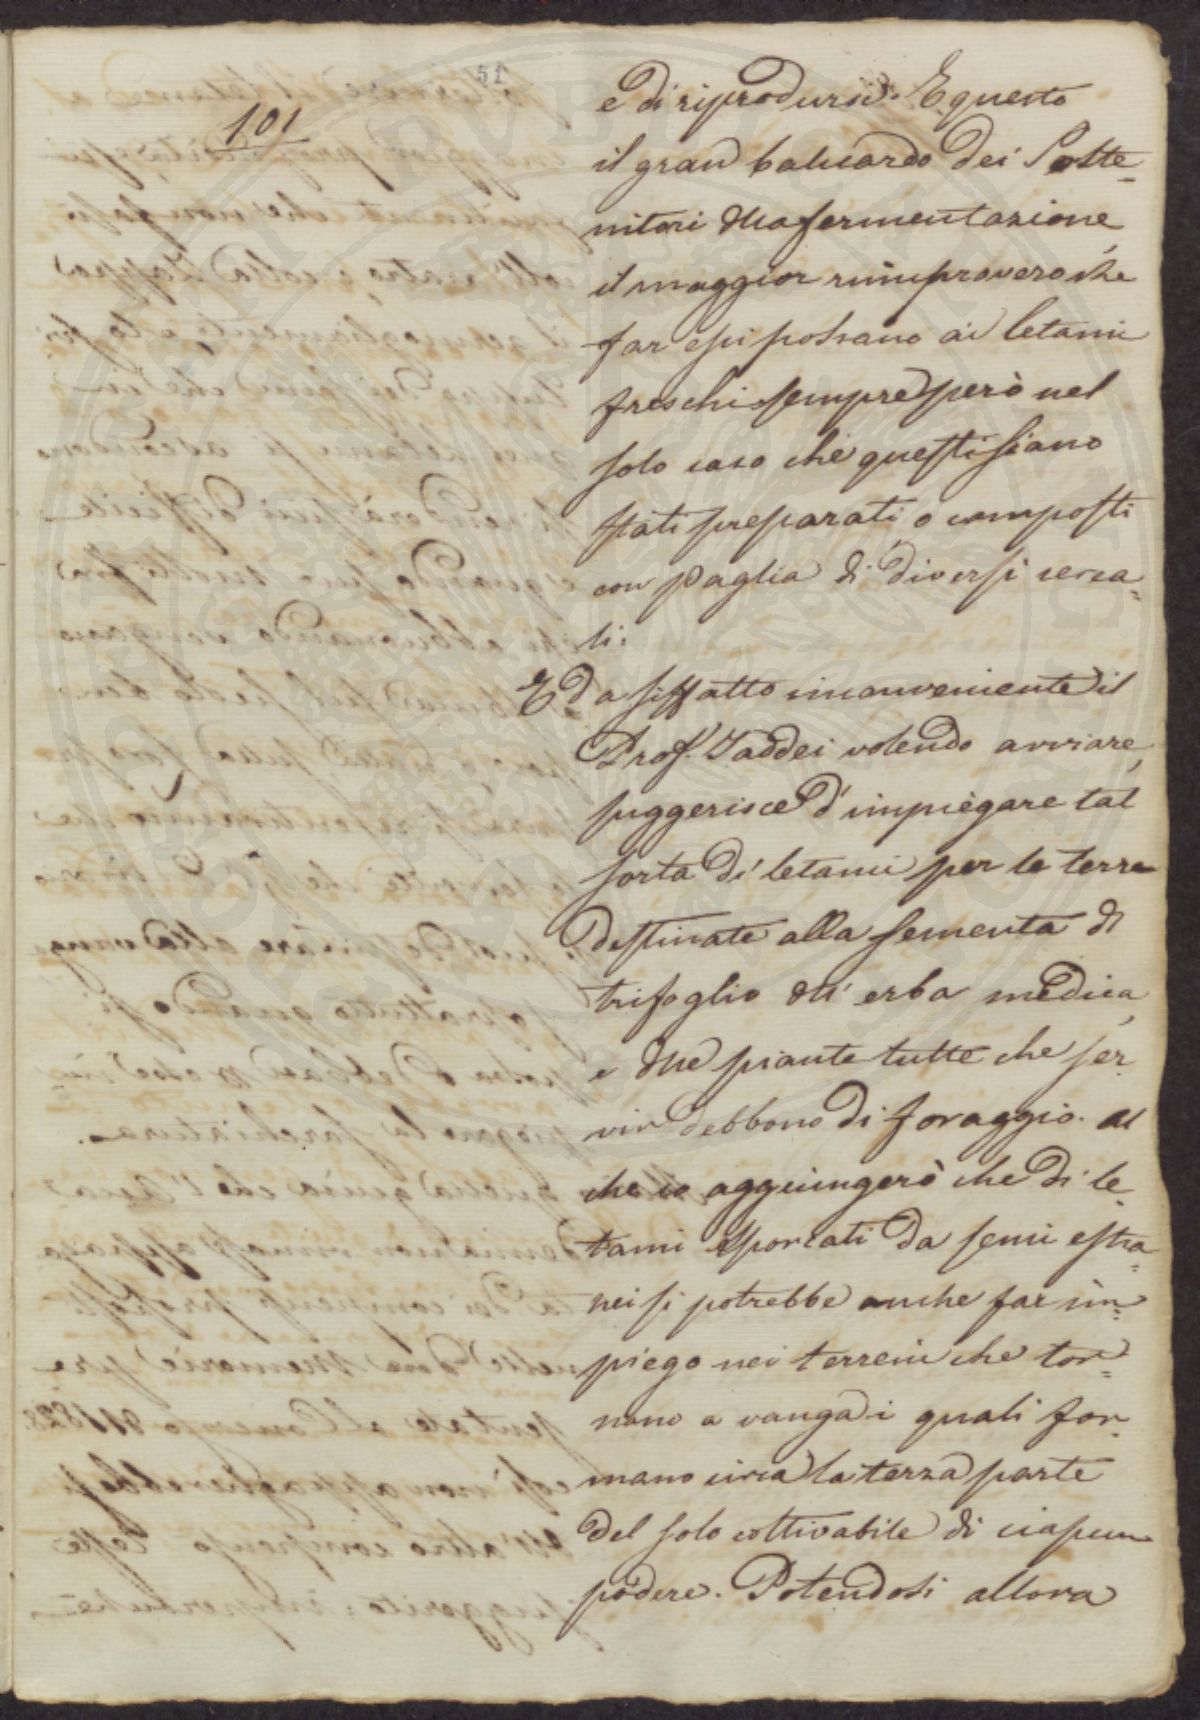 51
101
e di riprodursi. E questo
il gran baluardo dei Soste-
nitori della fermentazione,
il maggior rimprovero che
far essi possano ai letami
freschi sempre però nel
solo caso che questi siano
stati preparati o composti
con paglia di diversi cerea-
li.
E da siffatto inconveniente il
Prof. Taddei volendo avviare,
suggerisce d'impiegare tal
sorta di letami per le terre
destinate alla sementa di
trifoglio dell'erba medica,
e delle piante tutte che ser-
vir debbono di foraggio. Al
che io aggiungerò che di le-
tami sporcati da semi estra-
nei si potrebbe anche far im-
piego nei terreni che tor-
nano a vanga i quali for-
mano circa la terza parte
del solo coltivabile di ciascun
podere. Potendosi allora